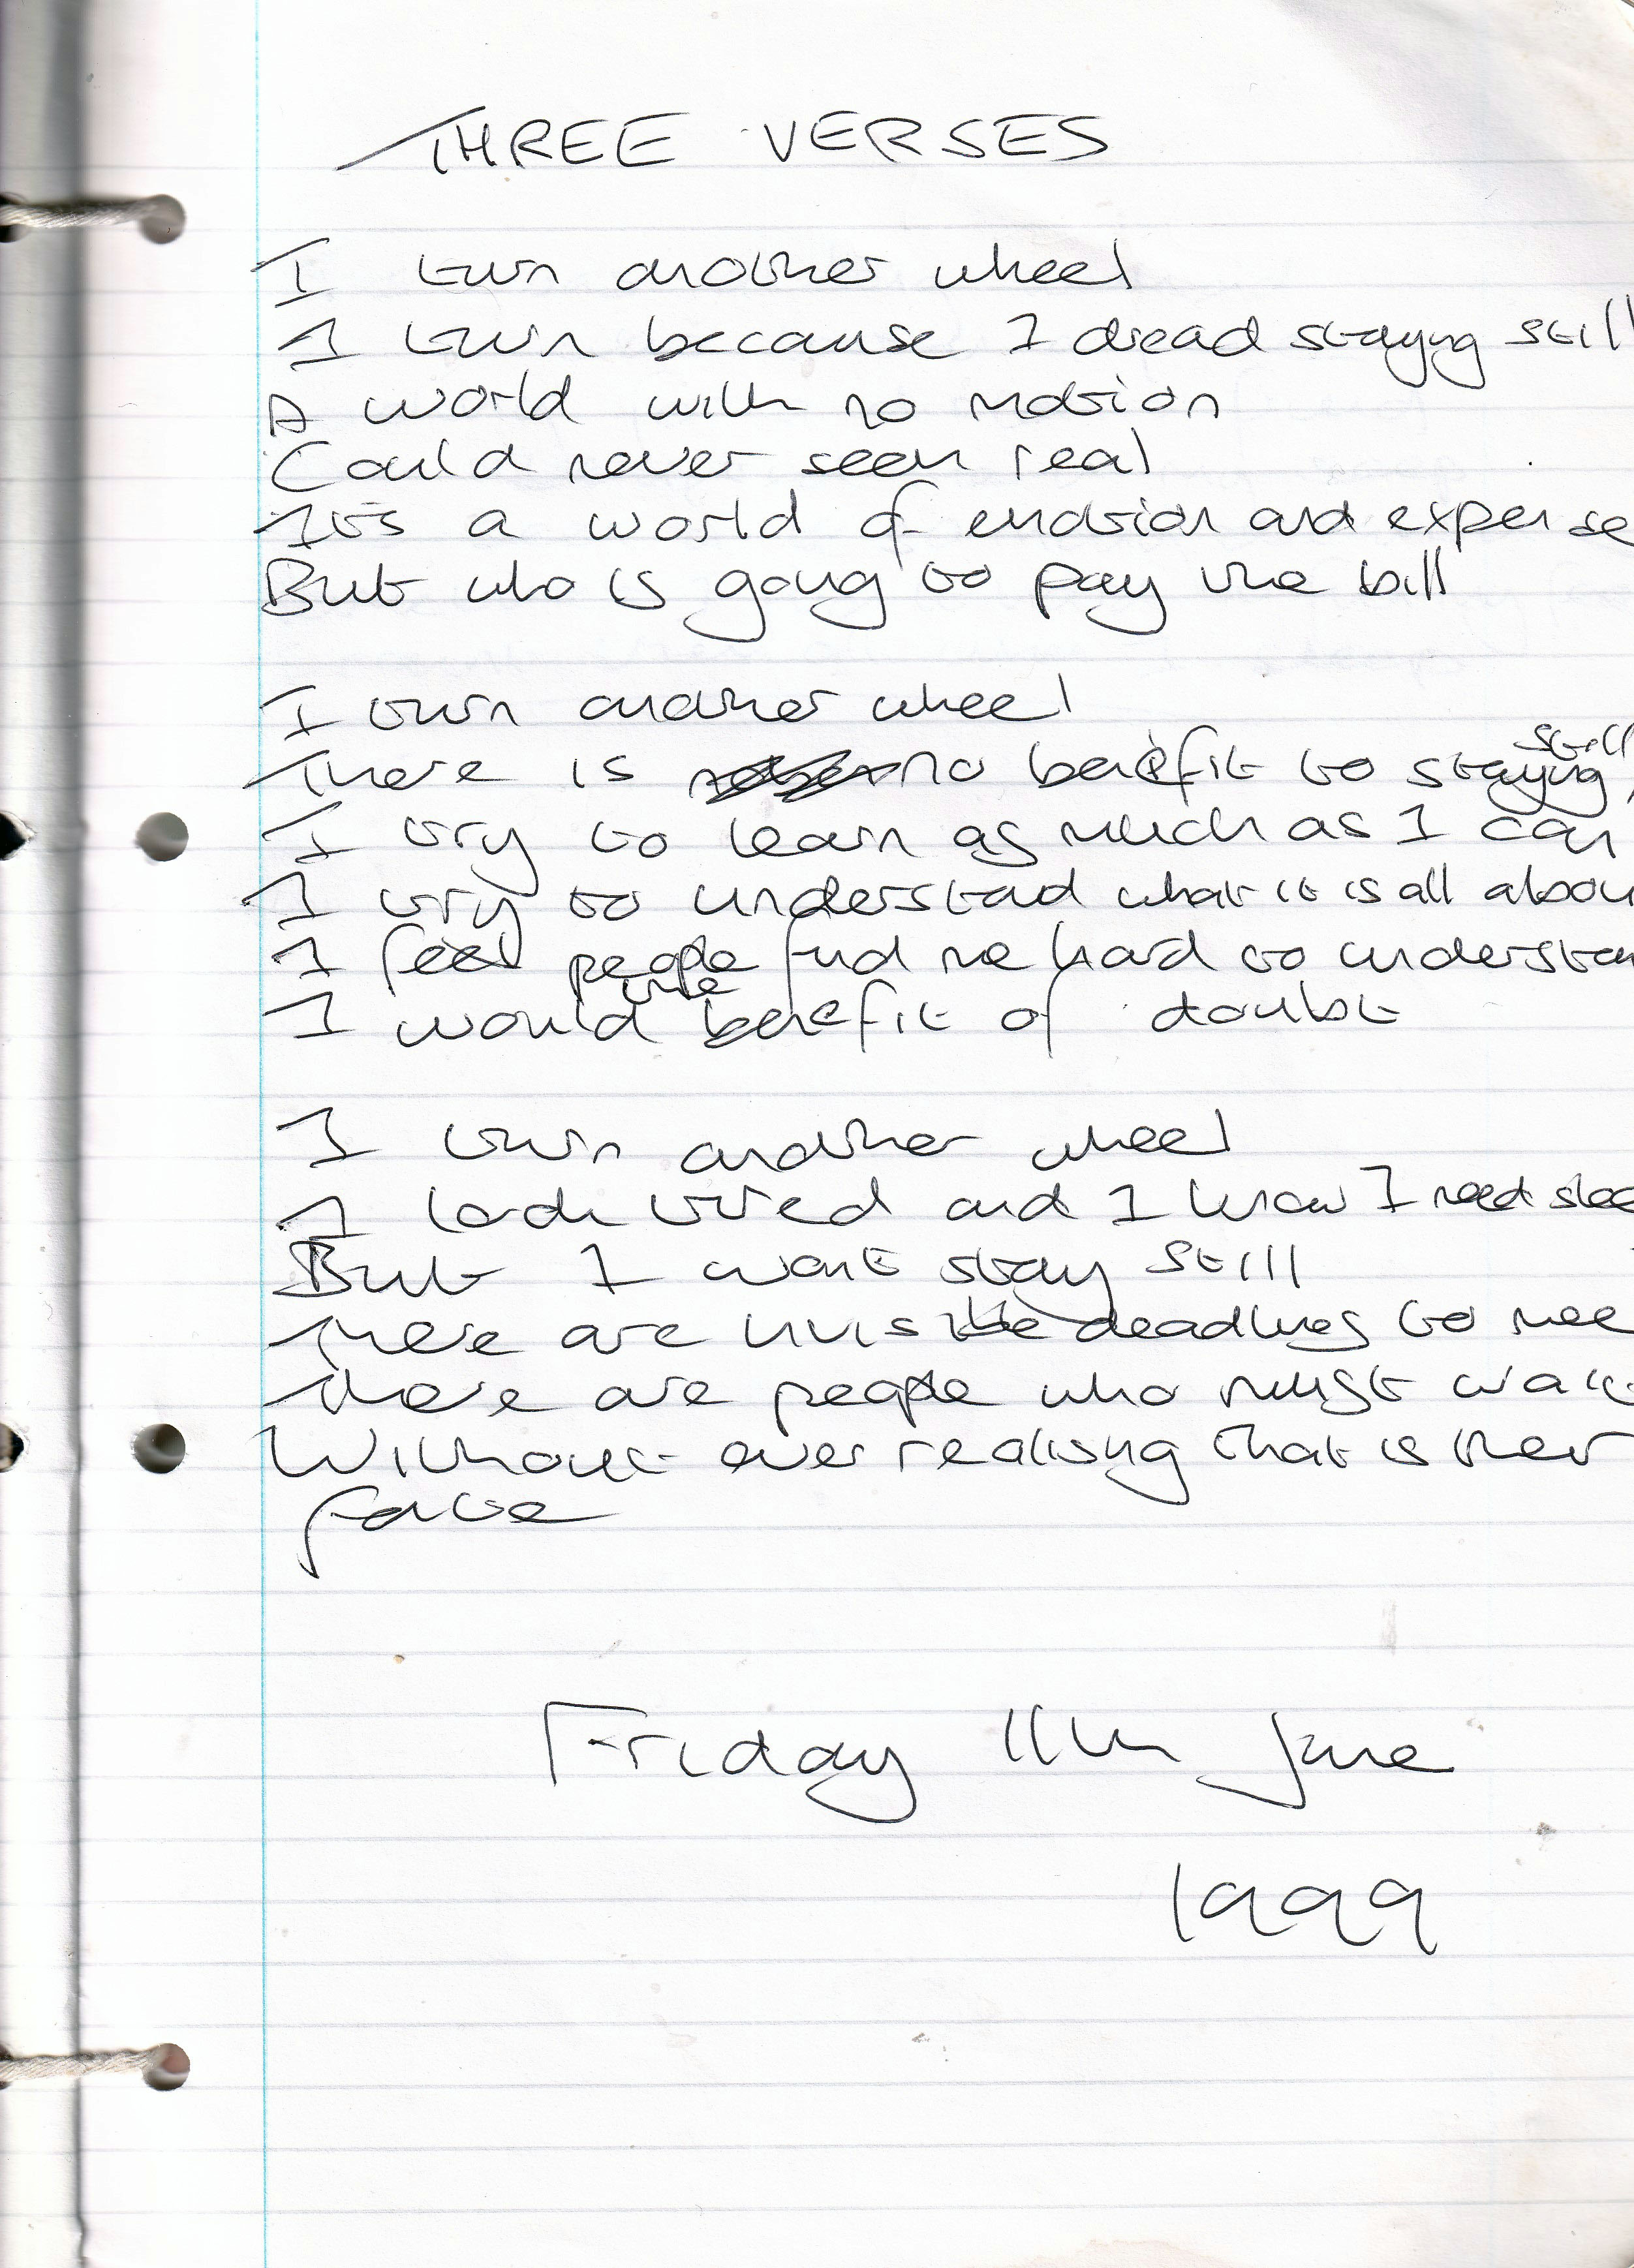 THREE VERSES
I turn another wheel
I turn because I dread staying still
A world with no motion
Could never seem real
It's a world of emotion and expense
But who is going to pay the bill
I turn another wheel
There is no benefit to staying still
I try to learn as much as I can
I try to understand what it is all abou
I feel people find me hard to understan
I would the benefit of doubt
I turn another wheel
I look tired and I know I need slee
But I wont stay still
There are invisible deadlines to mee
There are people who must wait
Without ever realising that is their
fate
Friday 11th June
1999